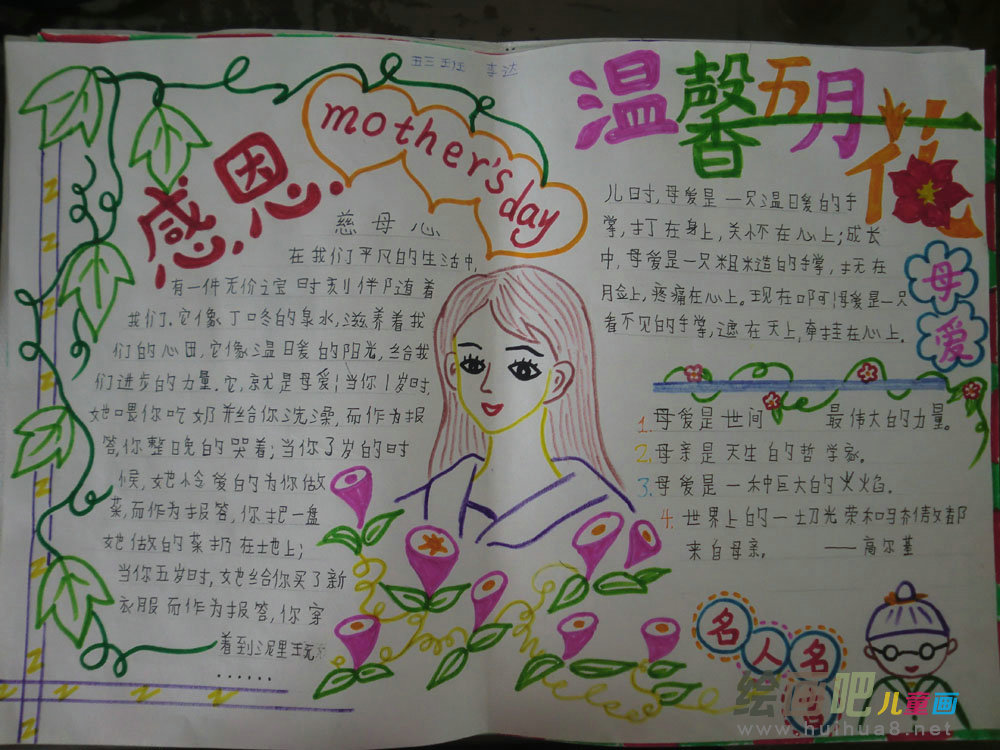 感恩
mother's day
慈母心
在我们平凡的生活中,
有一件无价之宝时刻伴随着
我们.它像丁咚的泉水,滋养着我
们的心田,它像温暖的阳光,给我
们进步的力量.它,就是母爱!当你1岁时,
她喂你吃奶并给你洗澡,而作为报
答,你整晚的哭着;当你3岁的时
候,她怜爱的为你做
菜,而作为报答,你把一盘
她做的菜扔在地上;
当你五岁时,她给你买了新
衣服而作为报答,你穿
着到泥里玩
......
温馨五月花
儿时,母爱是一只温暖的手
掌,打在身上,关怀在心上;成长
中,母爱是一只粗糙的手掌,打在
月金上,疼痛在心上。现在啊!母爱是一只
看不见的手掌,遮在天上,牵挂在心上。
母爱
1.母爱是世间 最伟大的力量。
2.母亲是天生的哲学家。
3.母爱是一种巨大的火焰。
4.世界上的一切光荣和骄傲都
来自母亲。 ——高尔基
名人名
绘画吧儿童画
www.huihua8.net